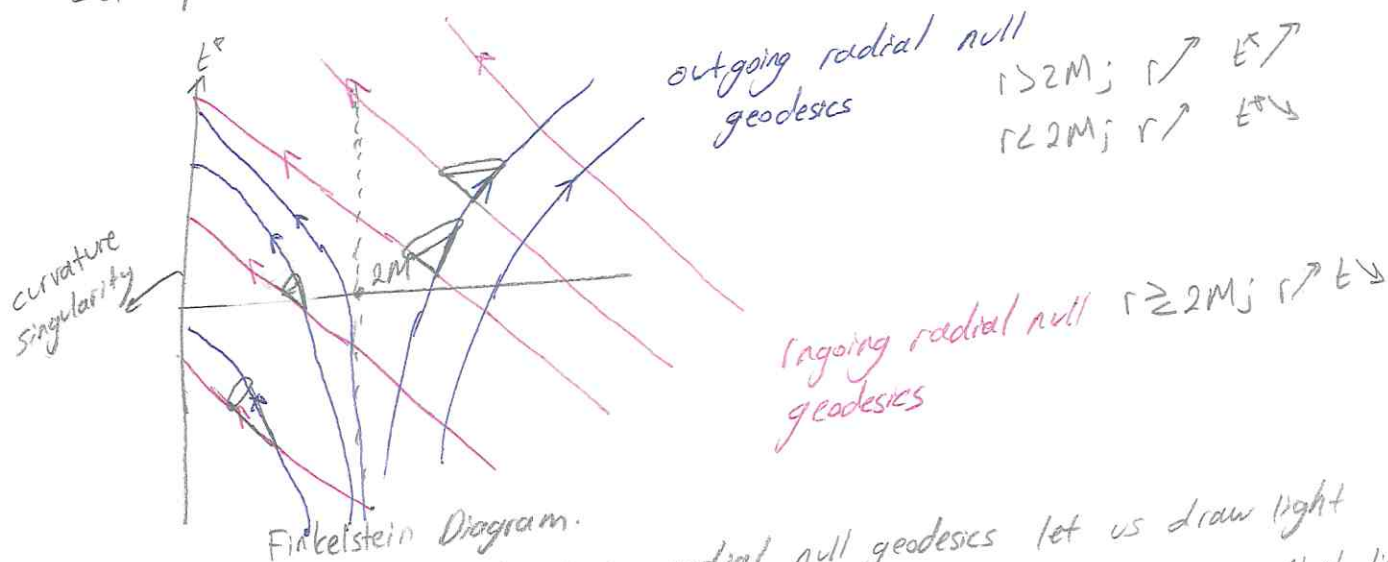 t*
outgoing radial null
geodesics
r>2M; r↗ t*↗
r<2M; r↗ t*↘
curvature
singularity
2M
Ingoing radial null r≷2M; r↗ t↘
geodesics
Finkelstein Diagram.
radial null geodesics let us draw light